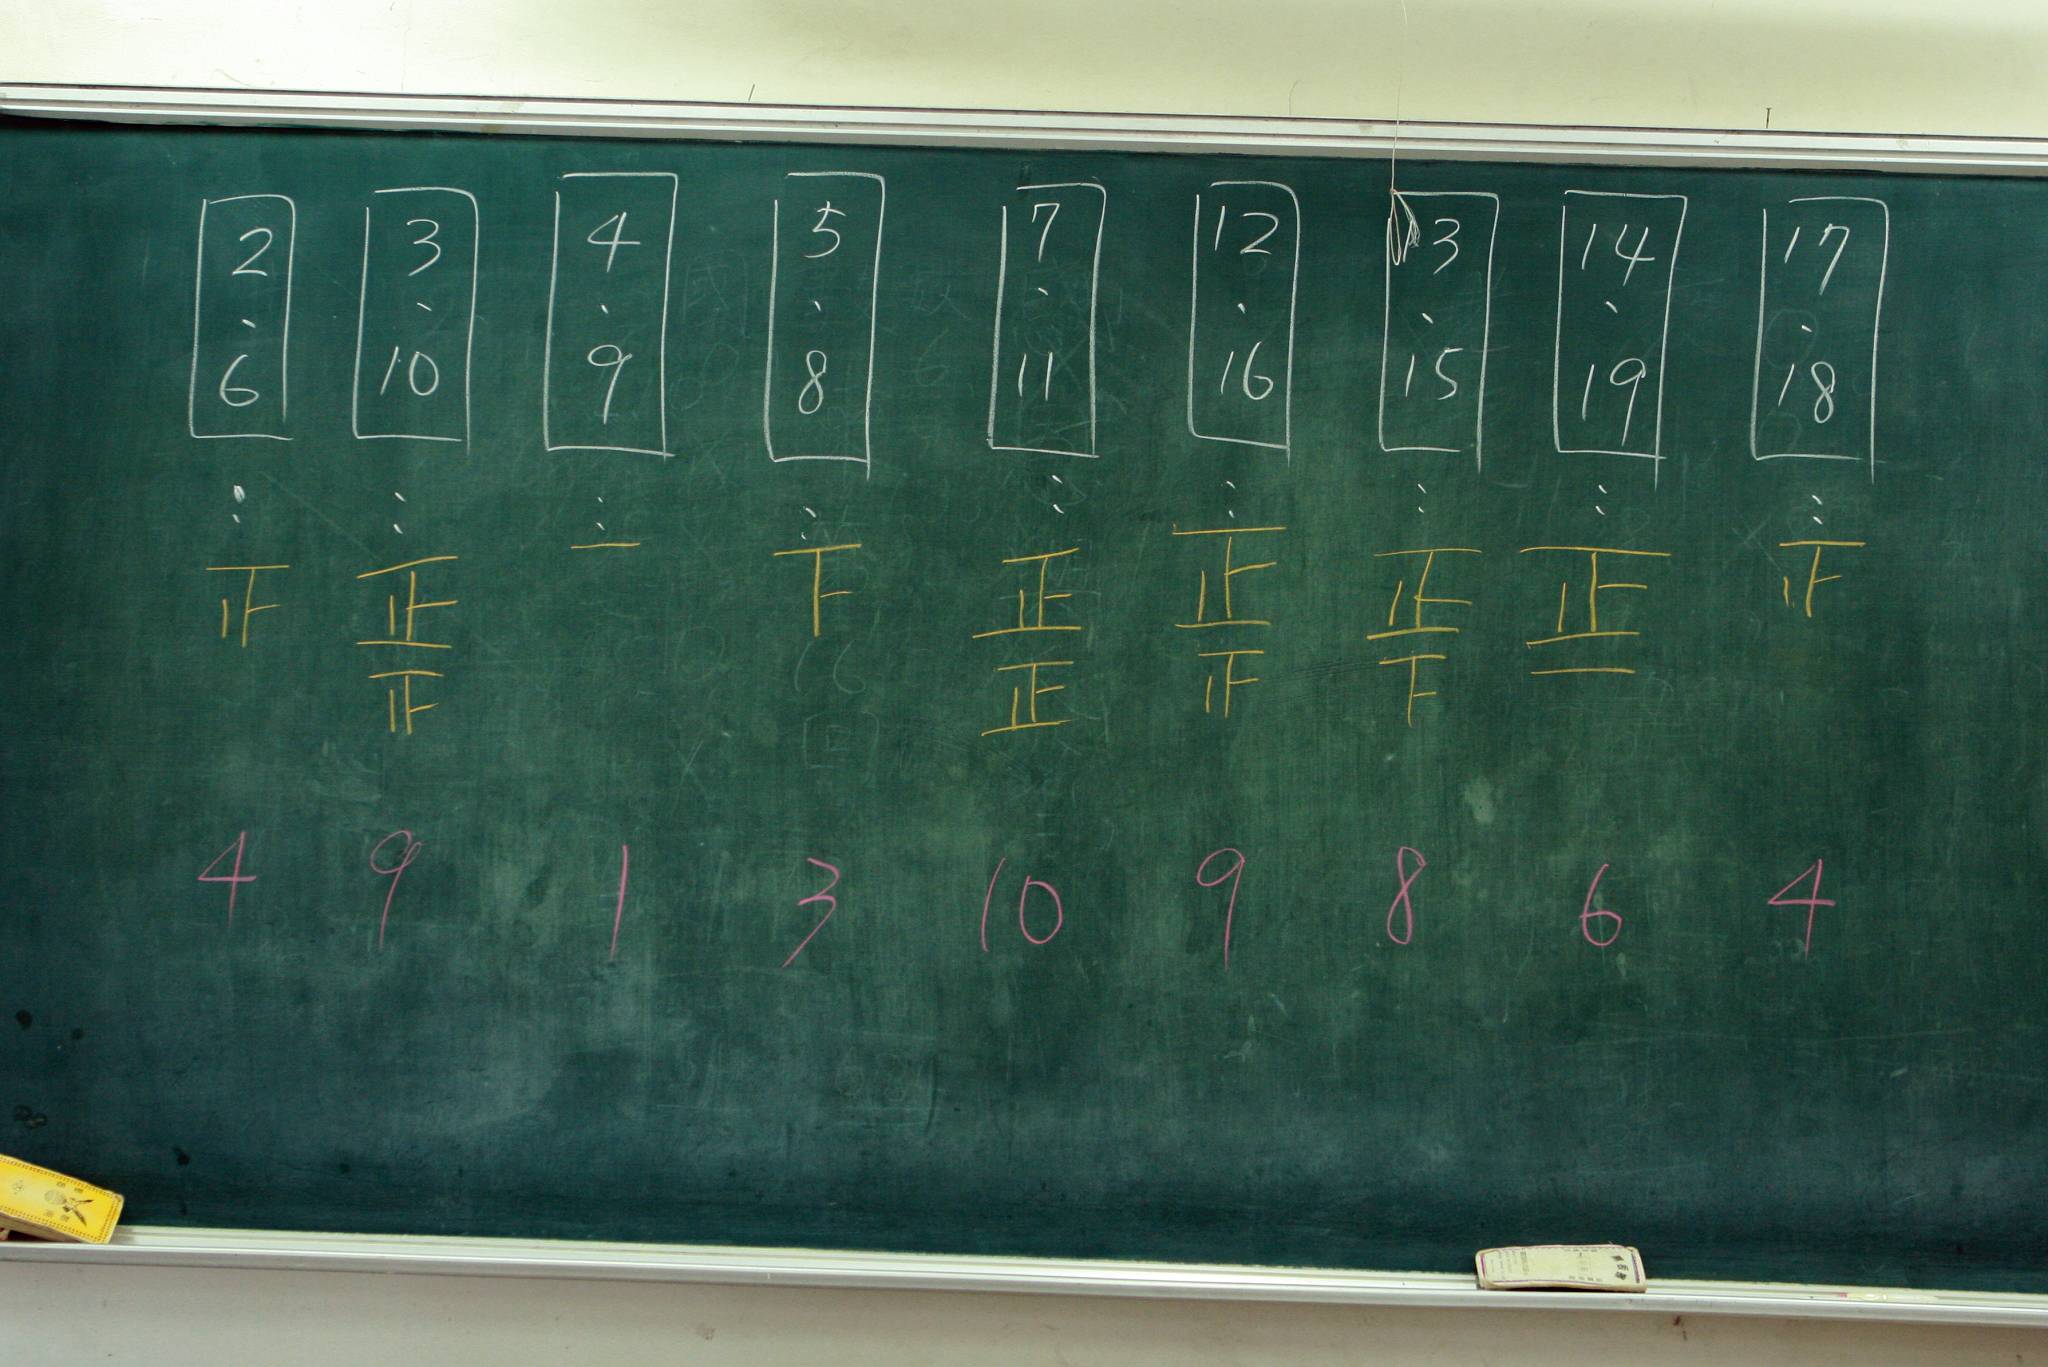 2 3 4 5 7 12 13 14 17
、 、 、 、 、 、 、 、 、
6 10 9 8 11 16 15 19 18
： ： ： ： ： ： ： ： ：
正 一 下 正 正 正 正
正 正 下 一
4 9 1 3 10 9 8 6 4